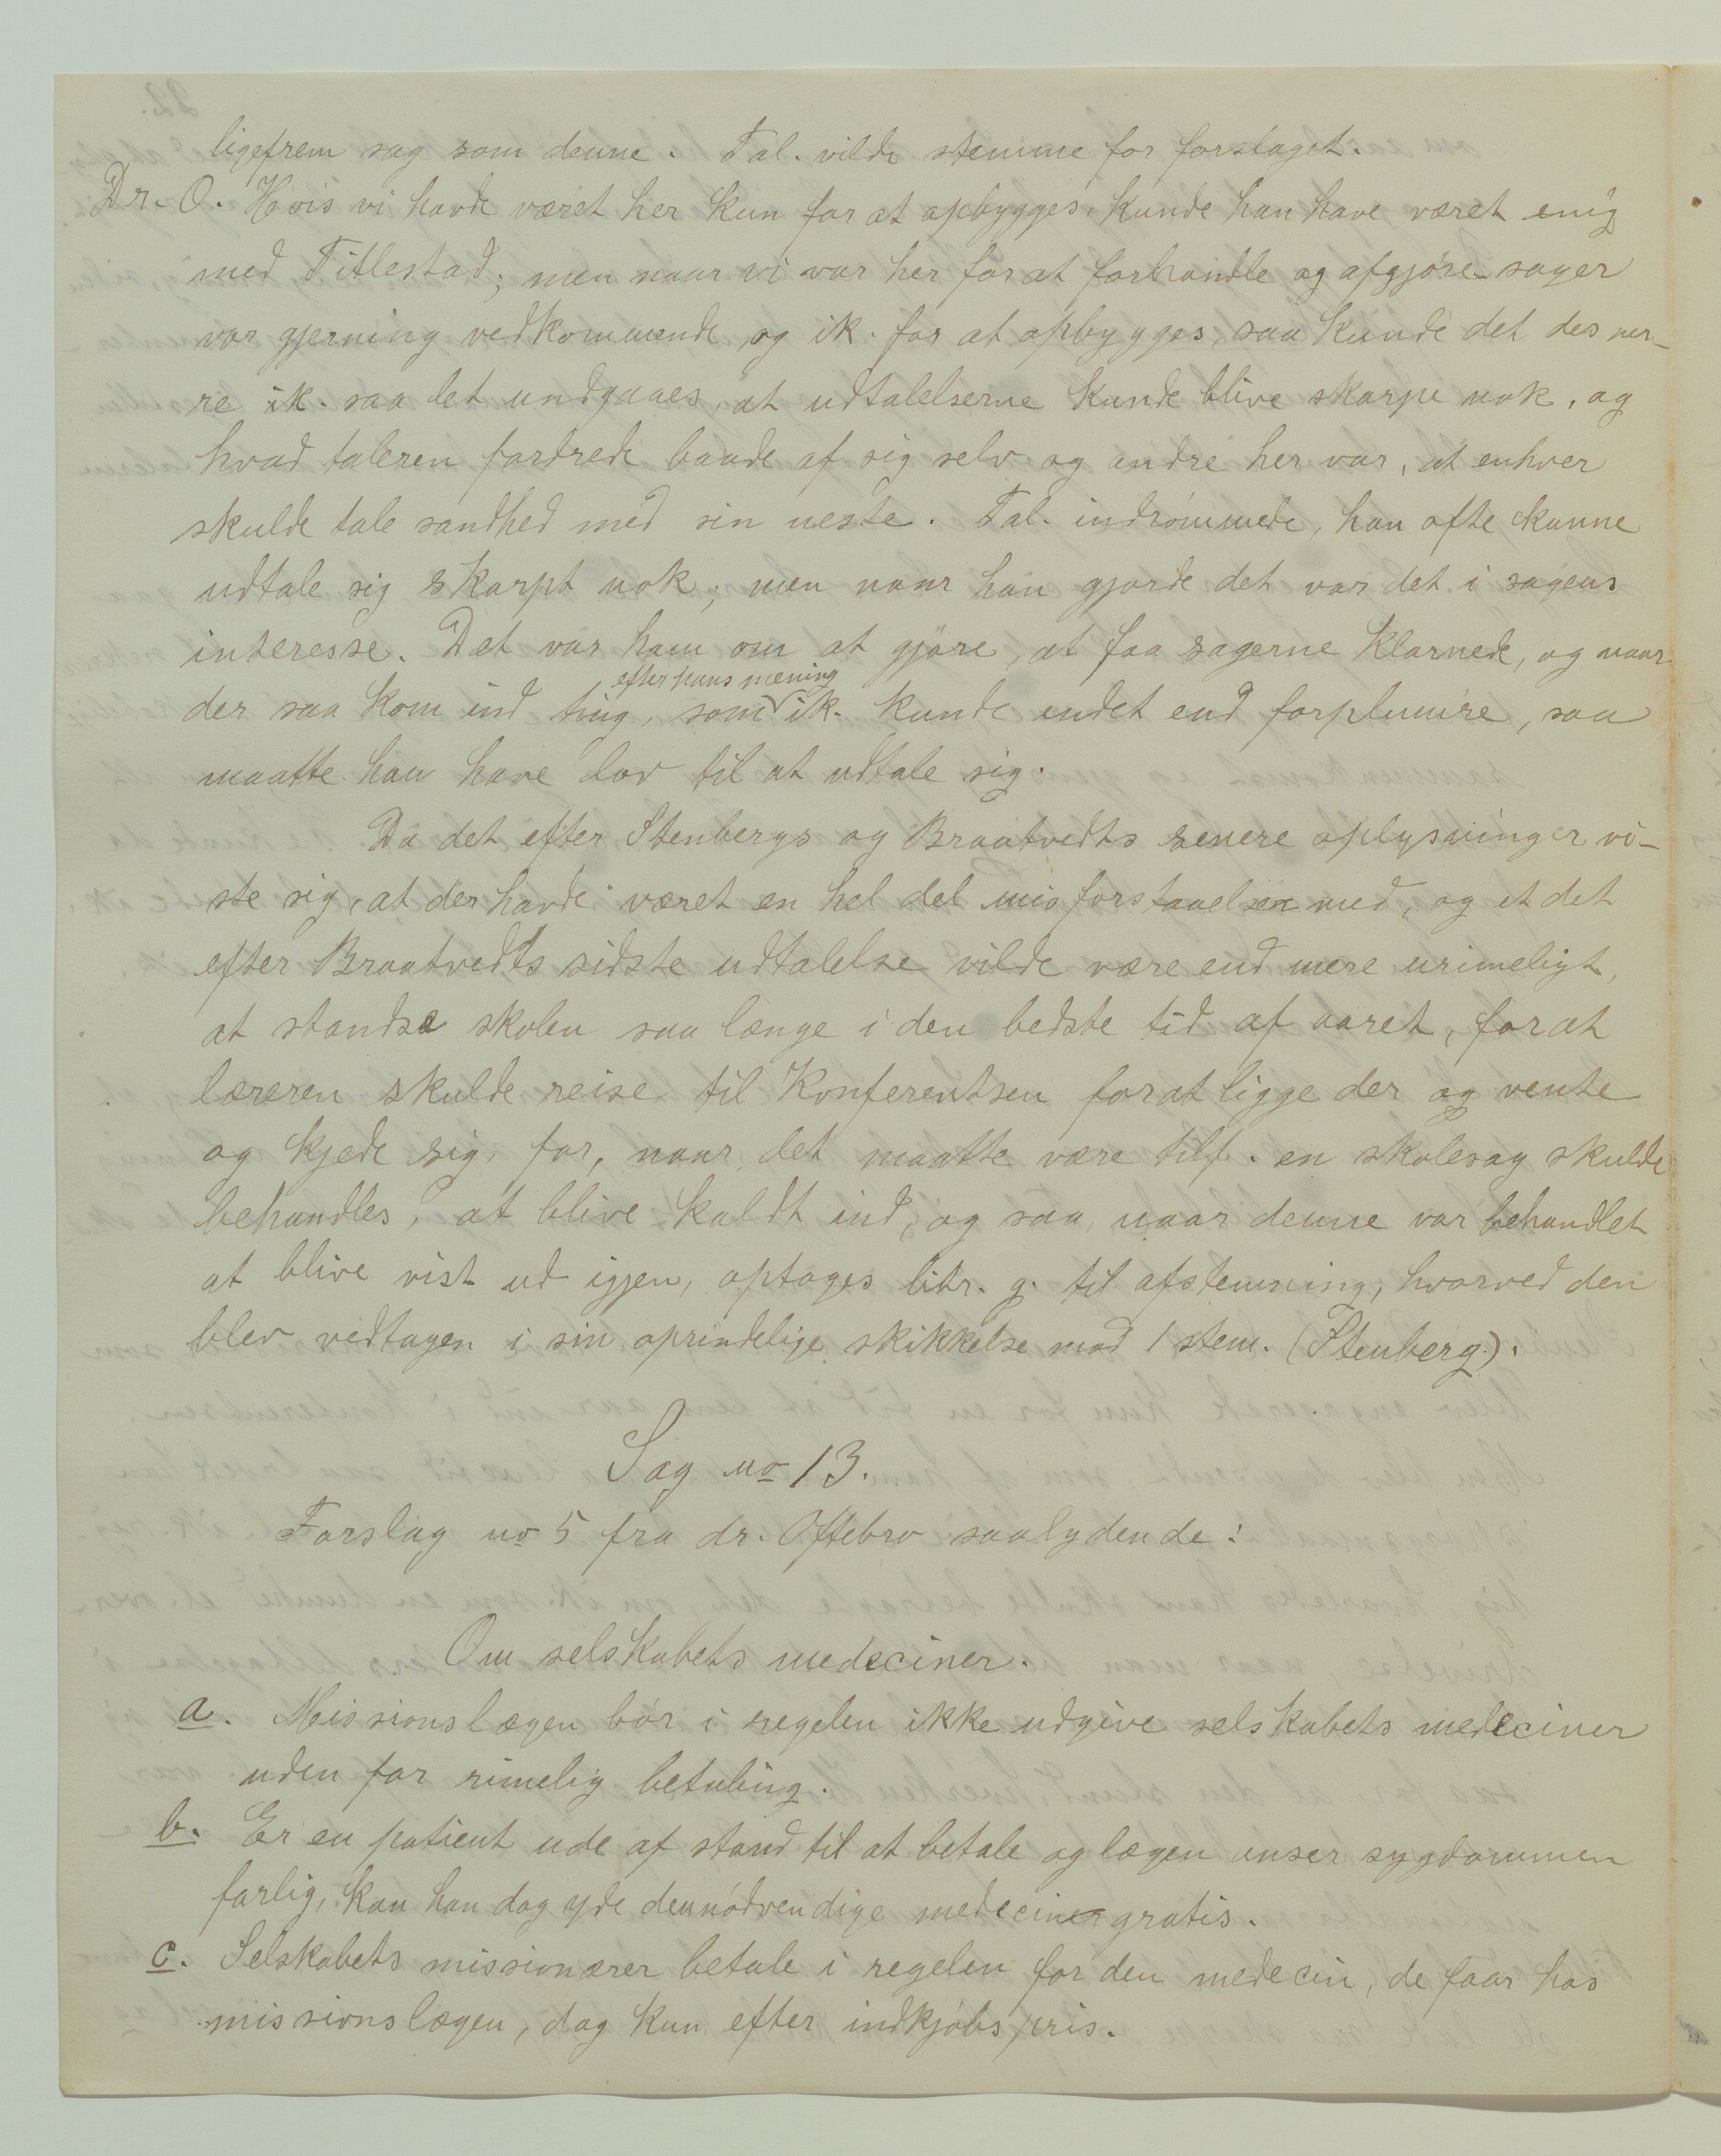 ligefrem sag som denne. Tal. vilde stemme for forslaget.
Dr. O. Hvis vi havde været her kun for at opbygges, kunde han have været enig
med Titlestad; men naar vi var her for at forhandle og afgjøre sager
vor gjerning vedkommende, og ik. for at opbygges, saa kunde det des ver-
re ik. saa let undgaaes, at udtalelserne kunde blive skarpe nok, og
hvad taleren fordrede baade af sig selv og andre her var, at enhver
skulde tale sandhed med sin neste. Tal. indrømmede, han ofte kunne
udtale sig skarpt nok; men naar han gjorde det var det i sagens
interesse. Det var ham om at gjøre, at faa sagerne klarnede, og naar
efter hans mening
der saa kom ind ting, som ik. kunde endet end forplumre, saa
maatte han have lov til at udtale sig.
Da det efter Stenbergs og Braatvedts senere oplysninger vi-
ste sig, at der havde været en hel del misforstaaelser med, og at det
efter Braatvedts sidste udtalelse vilde være end mere urimeligt,
at standse skolen saa længe i den bedste tid af aaret, for at
læreren skulde reise til Konferentsen for at ligge der og vente
og kjede sig, for, naar det maatte være tilf. en skolesag skulde
behandles, at blive kaldt ind, og saa, naar denne var behandlet
at blive vist ud igjen, optages litr. g. til afstemning, hvorved den
blev vedtagen i sin oprindelige skikkelse mod 1 stem. (Stenberg.).
Sag no 13.
Forslag no 5 fra dr. Oftebro saalydende:
Om selskabets mediciner.
a. Missionslægen bør i regelen ikke udgive selskabets mediciner
uden for rimelig betaling.
b. Er en patient ude af stand til at betale og lægen anser sygdommen
farlig, kan han dog yde den nødvendige medecin gratis.
c. Selskabets missionærer betale i regelen for den medecin, de faar hos
missionslægen, dog kun efter indkjøbspris.